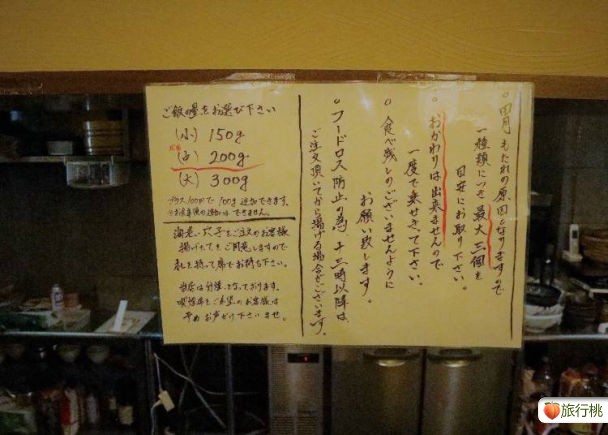 ◦ 胃もたれの原因となりますので
一種類につき最大三個を
目安にお取り下さい。
◦ おかわりは出来ませんので
一度で乗せきって下さい。
◦ 食べ残しのございませんように
お願い致します。
◦ フードロス防止の為、十三時以降は、
ご注文頂いてから揚げる場合がございます。
ご飯の量をお選び下さい
(小) 150g
(中) 200g
(大) 300g
プラス100円で100g追加できます。
※お食事後の追加はできません。
海老、穴子をご注文のお客様
揚げたてをご用意しますので
札を持って席でお待ち下さい。
当店は分煙となっております。
喫煙席をご希望のお客様は
お声がけ下さいませ。
旅行桃